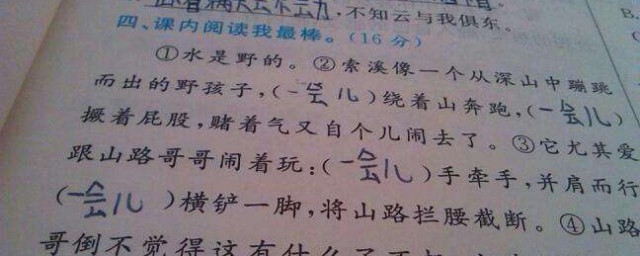 看满天云不云九,不知云与我俱东。
四、课内阅读我最棒。(16分)
①水是野的。②索溪像一个从深山中蹦跳
而出的野孩子,(一会儿)绕着山奔跑,(一会儿)
撅着屁股,赌着气又自个儿闹去了。③它尤其爱
跟山路哥哥闹着玩:(一会儿)手牵手,并肩而行
(一会儿)横铲一脚,将山路拦腰截断。④山路
哥倒不觉得这有什么